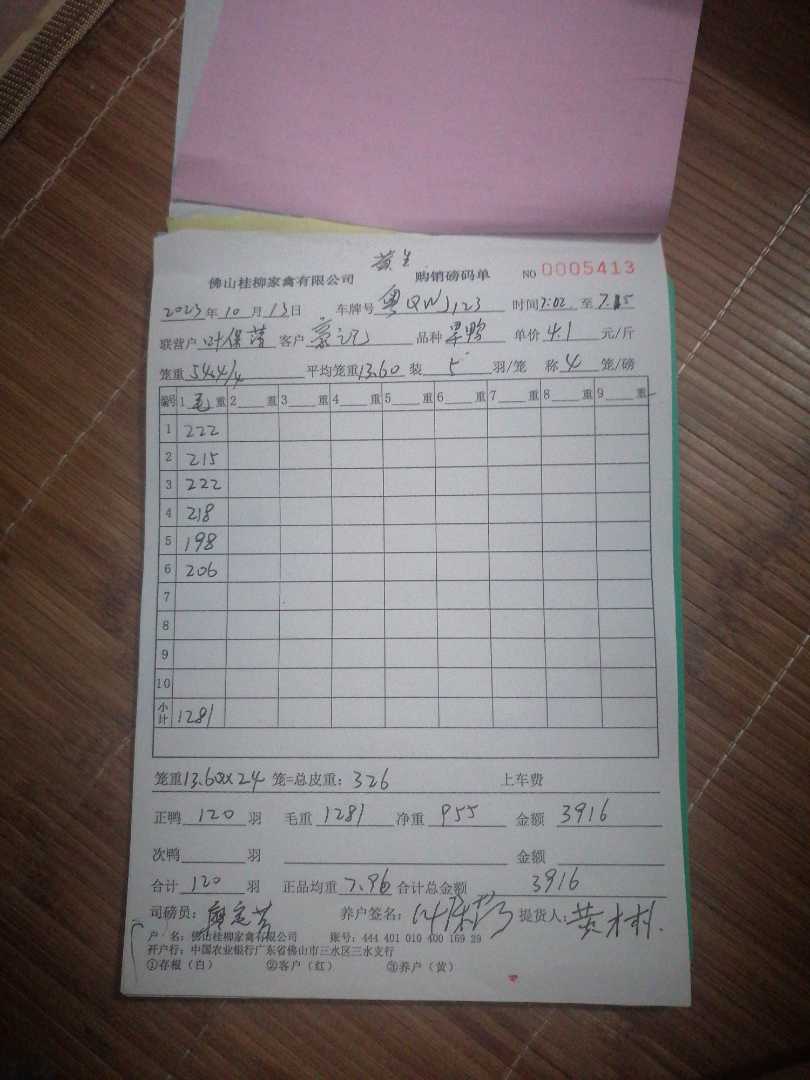 黄生
佛山桂柳家禽有限公司 购销磅码单 NO 0005413
2023年10月13日 车牌号 粤QWJ123 时间7:02 至 7:15
联营户 叶保 客户 豪记 品种 黑鸭 单价 4.1 元/斤
笼重 54.4/4 平均笼重 13.60 装 5 羽/笼 称 4 笼/磅
编号 1 毛 重 2 重 3 重 4 重 5 重 6 重 7 重 8 重 9 重
1 222
2 215
3 222
4 218
5 198
6 206
7
8
9
10
小计 1281
笼重13.60x24 笼=总皮重：326 上车费
正鸭 120 羽 毛重 1281 净重 955 金额 3916
次鸭 羽 金额
合计 120 羽 正品均重 7.96 合计总金额 3916
司磅员： 养户签名： 提货人：黄木林
户 名：佛山桂柳家禽有限公司 账号：444 401 010 400 169 29
开户行：中国农业银行广东省佛山市三水区三水支行
①存根（白） ②客户（红） ③养户（黄）